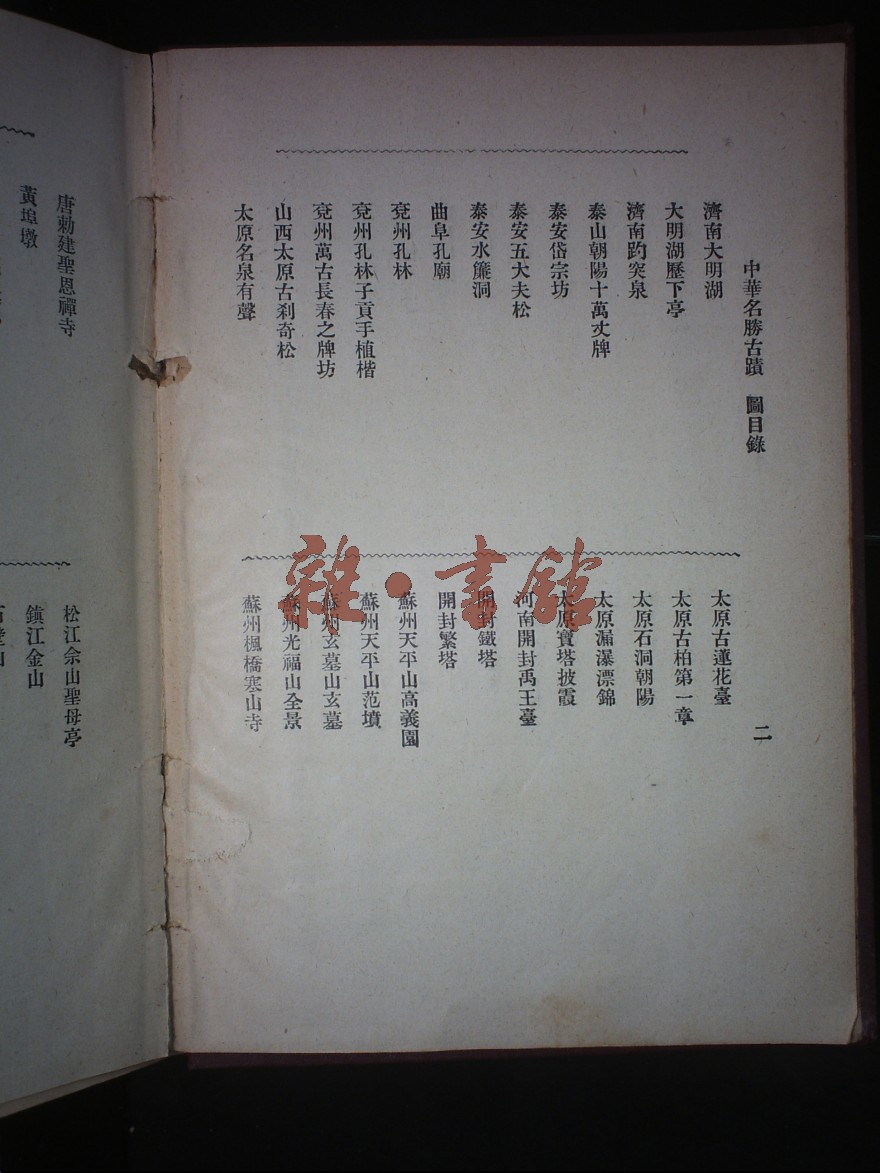 中華名勝古蹟　圖目錄
二
濟南大明湖
大明湖歷下亭
濟南趵突泉
泰山朝陽十萬丈牌
泰安岱宗坊
泰安五大夫松
泰安水簾洞
曲阜孔廟
兗州孔林
兗州孔林子貢手植楷
兗州萬古長春之牌坊
山西太原古刹奇松
太原名泉有聲
太原古蓮花臺
太原古柏第一章
太原石洞朝陽
太原漏瀑漂錦
太原寶塔披霞
河南開封禹王臺
開封鐵塔
開封繁塔
蘇州天平山高義園
蘇州天平山范墳
蘇州玄墓山玄墓
蘇州光福山全景
蘇州楓橋寒山寺
雜·書館
唐勅建聖恩禪寺
黃埠墩
松江佘山聖母亭
鎮江金山